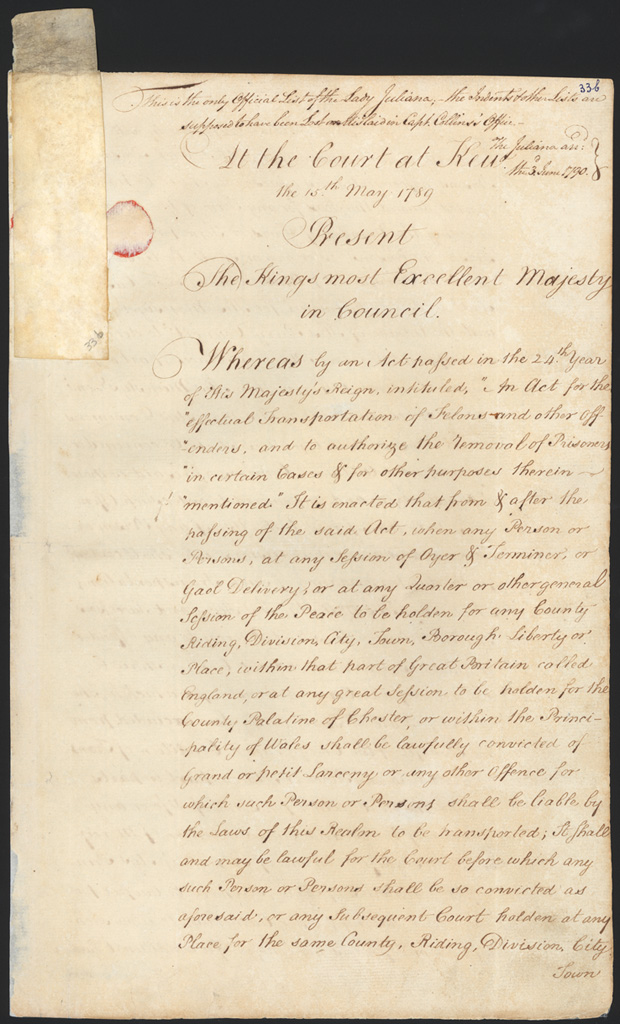 336
This is the only Official List of the Lady Juliana, – the Indents & other Lists are
supposed to have been Lost or mislaid in Capt. Collins's Office. –
The Juliana arr:
the 3d June 1790.
At the Court at Kew
the 15th May 1789
Present
The Kings most Excellent Majesty
in Council.
Whereas by an Act passed in the 24th Year
of His Majesty's Reign, intituled, "An Act for the
"effectual Transportation of Felons and other Off-
"enders, and to authorize the removal of Prisoners
"in certain Cases & for other purposes therein
"mentioned." It is enacted that from & after the
passing of the said Act, when any Person or
Persons, at any Session of Oyer & Terminer, or
Gaol Delivery; or at any Quarter or other general
Session of the Peace to be holden for any County
Riding, Division, City, Town, Borough Liberty or
Place, within that part of Great Britain called
England, or at any great Session to be holden for the
County Palatine of Chester, or within the Princi-
-pality of Wales shall be lawfully convicted of
Grand or petit Larceny or any other Offence for
which such Person or Persons shall be liable by
the Laws of this Realm to be transported; It shall
and may be lawful for the Court before which any
such Person or Persons shall be so convicted as
aforesaid, or any Subsequent Court holden at any
Place for the same County, Riding, Division, City
Town
336